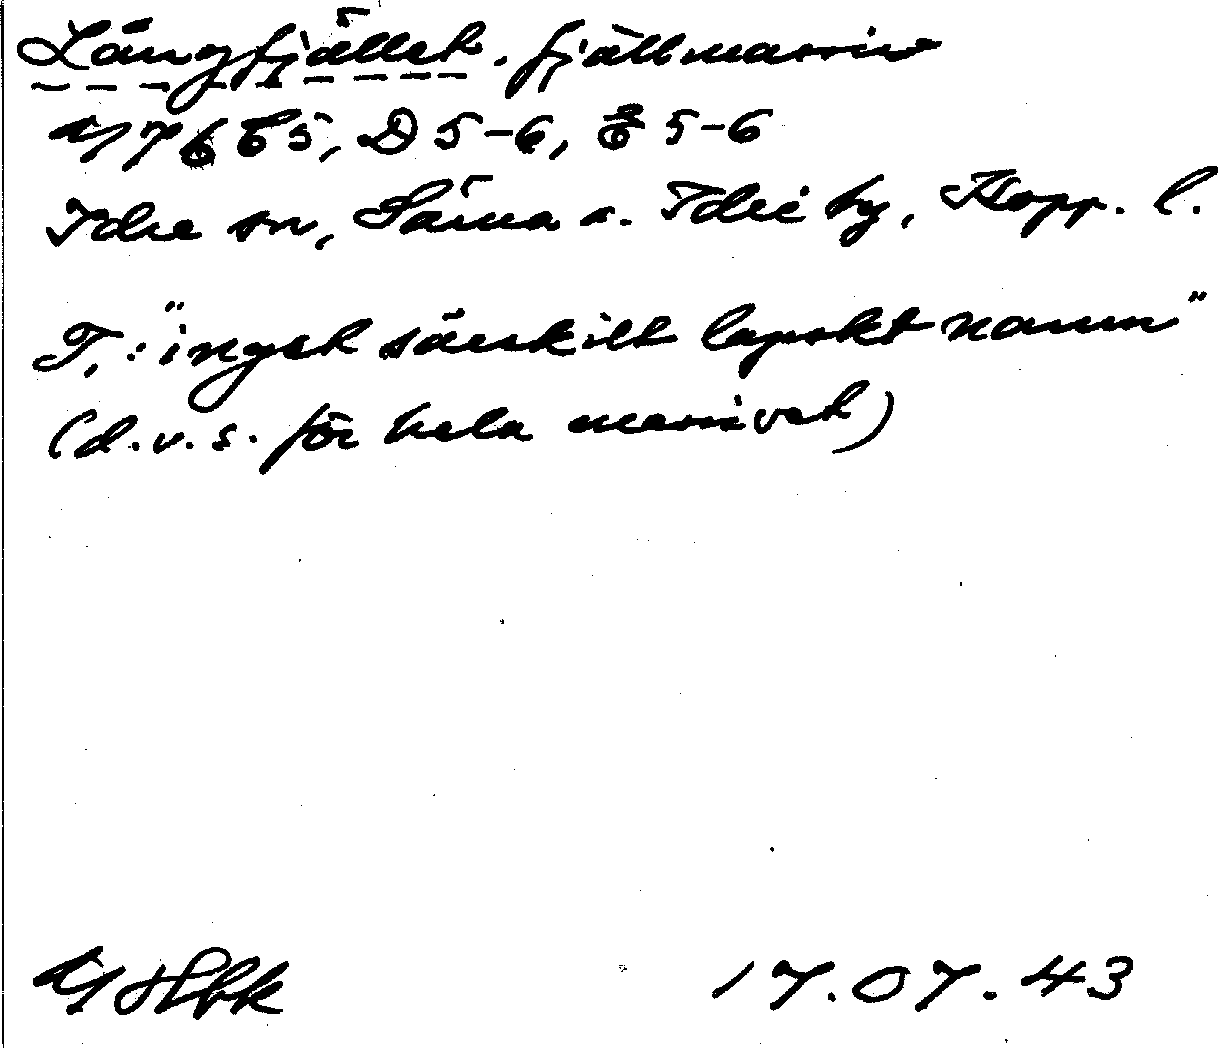 Långfjället. fjällmassiv
D 5-6, E 5-6
Idre sn, Särna o. Idre by, Kopp. l.
T.: "inget särskilt lapskt namn"
(d.v.s. för hela massivet)
17.07.43